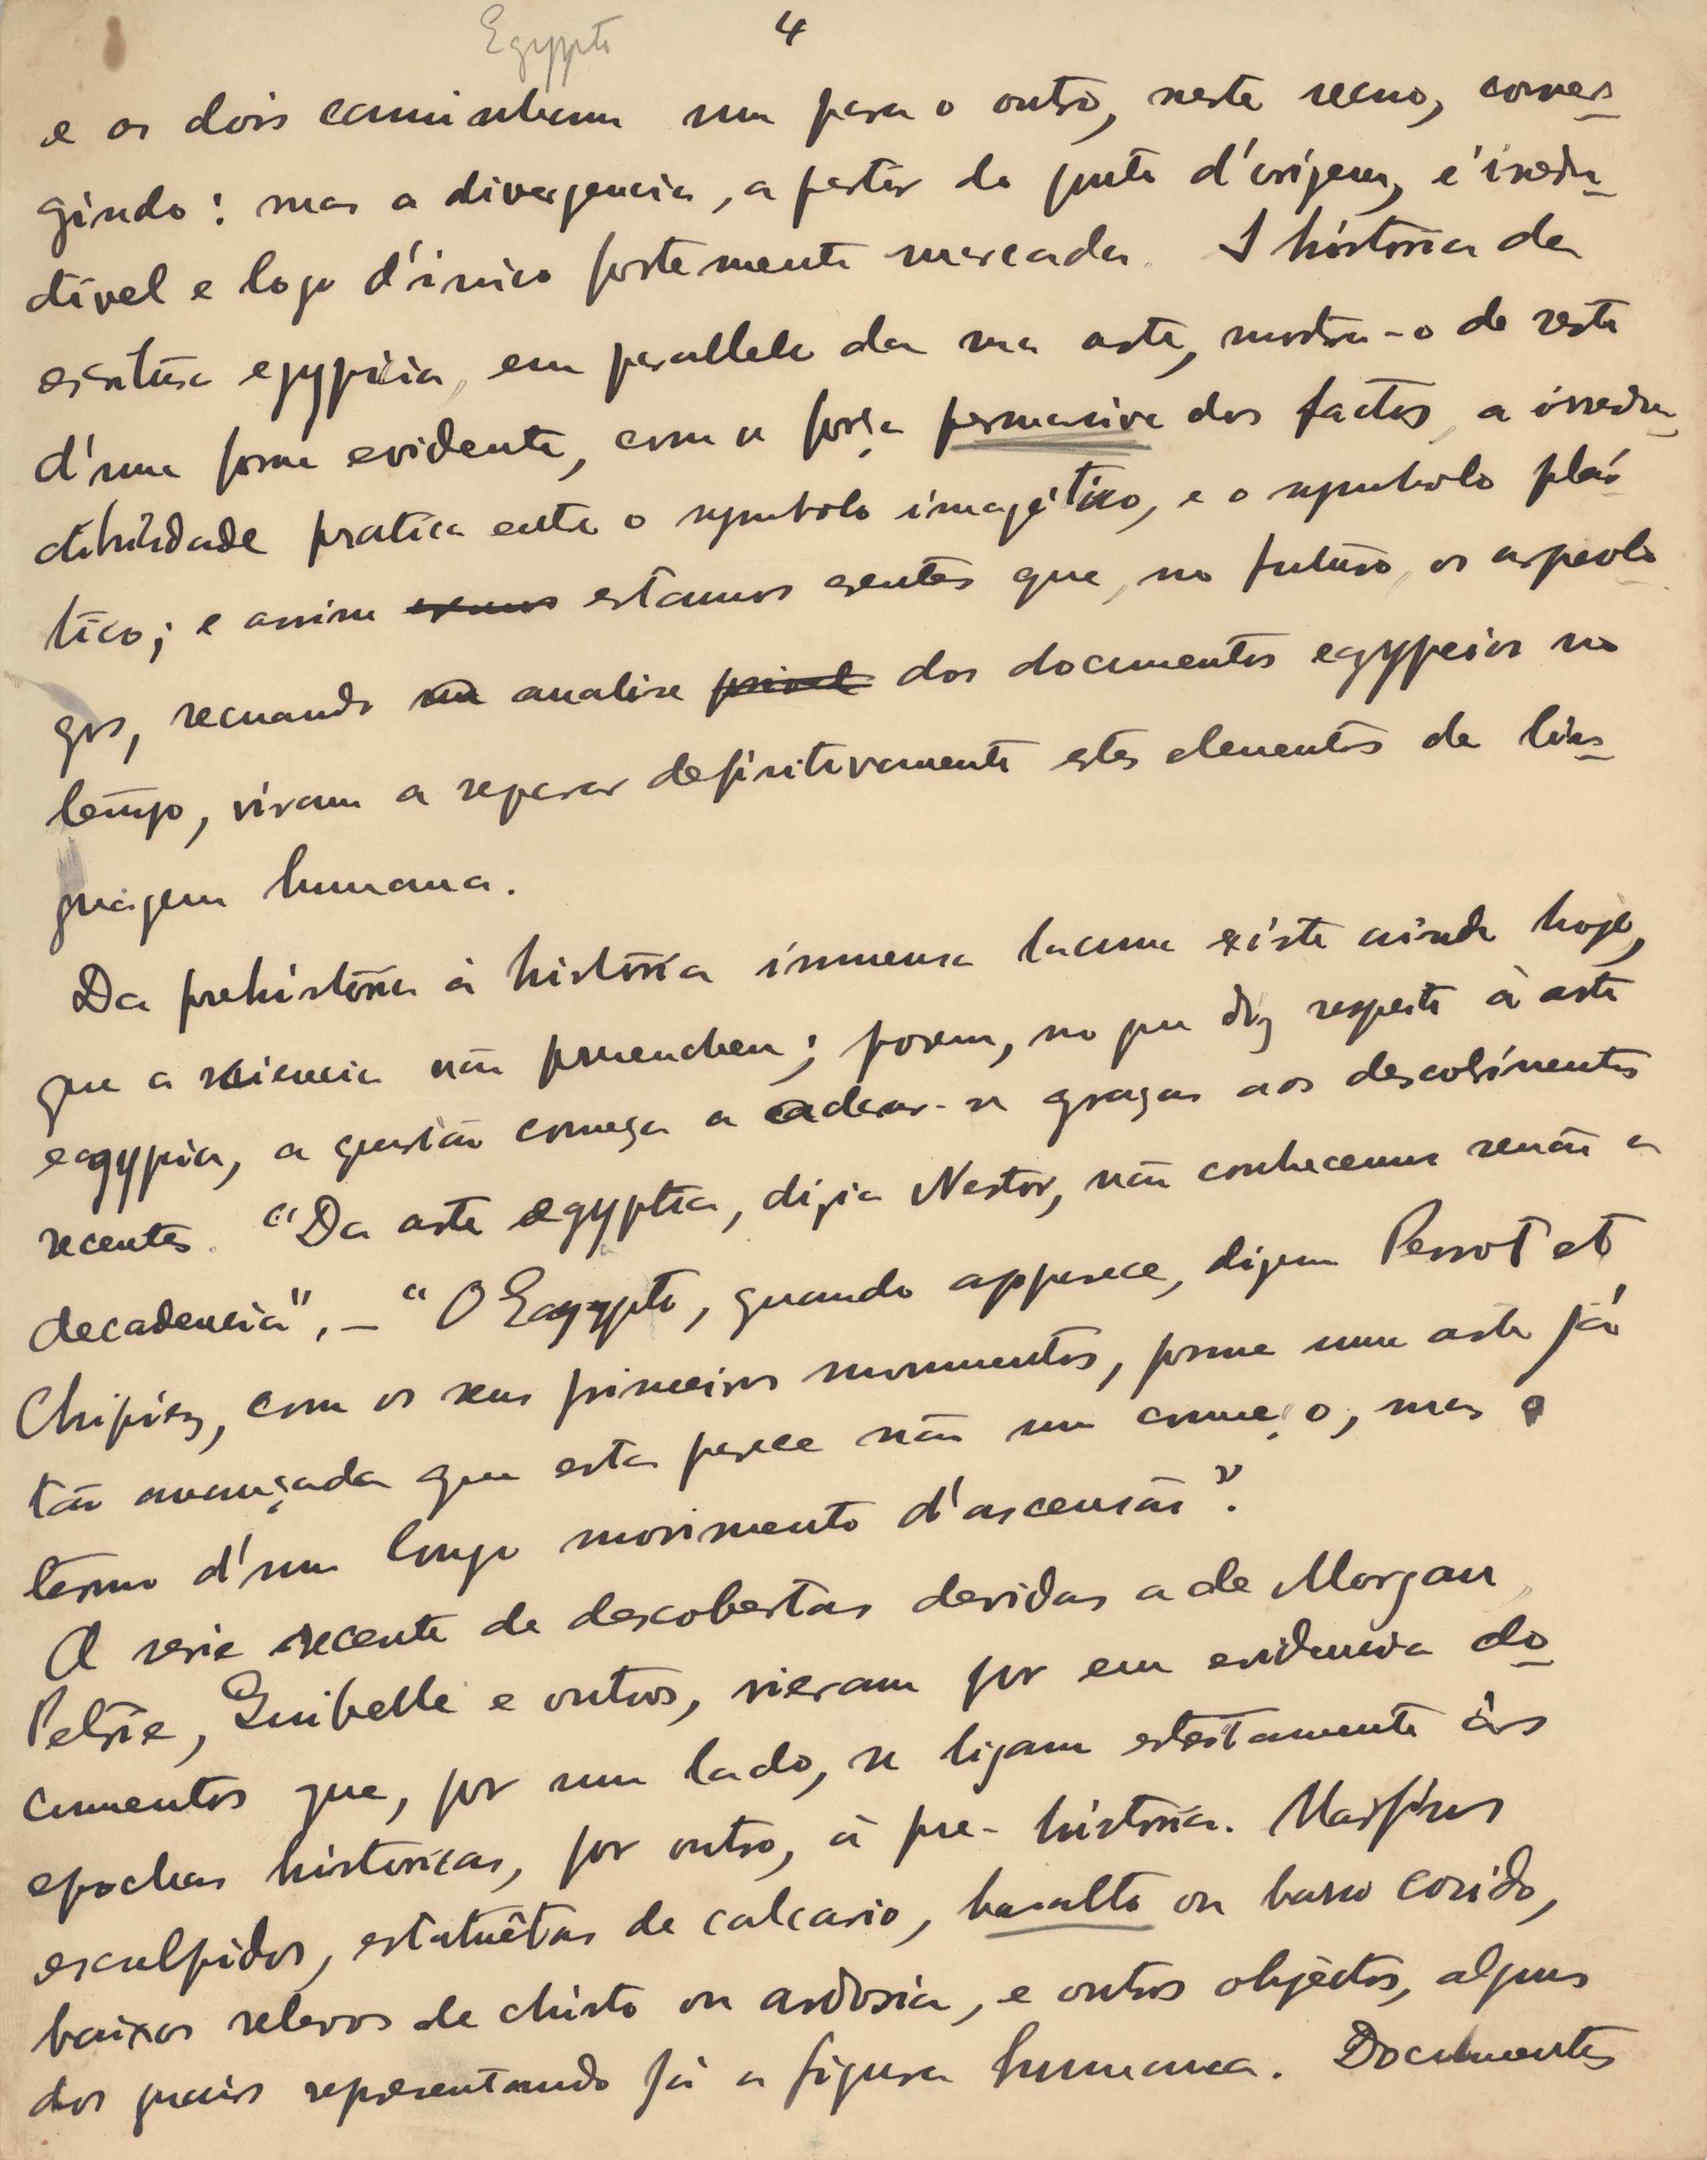 Egypto
4
e os dois caminham um para o outro, neste recuo, conver-
gindo: mas a divergencia, a partir do ponto d'origem, é irredu-
ctivel e logo d'inicio fortemente marcada. A história da
escritura egypcia, em parallelo da sua arte, mostra-o de resto
d'uma forma evidente, com a força persuasiva dos factos, a irredu-
ctibilidade pratica entre o symbolo imagético, e o symbolo plás-
tico; e assim estamos que, no futuro, os arqueolo-
gos, recuando na analise dos documentos egypcios no
tempo, viram a separar definitivamente estes elementos da lin-
guagem humana.
Da prehistória á história immensa lacuna existe ainda hoje,
que a sciencia não preencheu; porem, no que diz respeito à arte
egypcia, a questão começa a aclarar-se graças aos descobrimentos
recentes. "Da arte egyptia, dizia Nestor, não conhecemos senão a
decadencia", — "O Egypto, quando apparece, dizem Perrot et
Chipiez, com os seus primeiros monumentos, forma uma arte já
tão avançada que esta parece não um começo, mas o
termo d'um longo movimento d'ascensão".
A serie recente de descobertas devidas a de Morgan,
Petrie, Quibelle e outros, vieram pôr em evidencia do-
cumentos que, por um lado, se ligam estreitamente ás
epochas historicas, por outro, á pre-história. Marfins
esculpidos, estatuêtas de calcario, basalto ou barro cosido,
baixos relevos de chisto ou ardosia, e outros objéctos, alguns
dos quais representando já a figura humana. Documentos